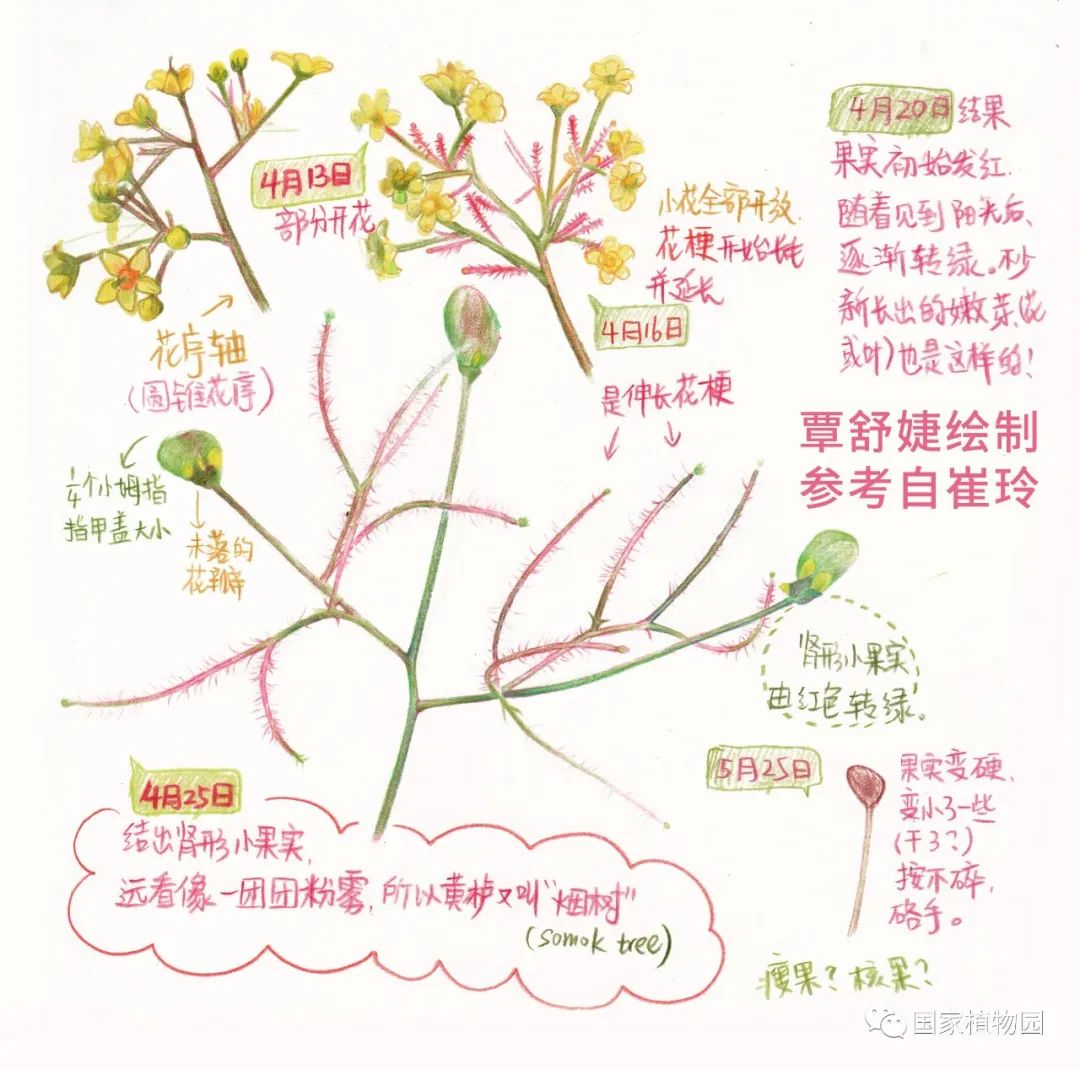 4月13日
部分开花
花序轴
(圆锥花序)
小花全部开放.
花梗开始长毛
并延长
4月16日
4月20日 结果
果实初始发红.
随着见到阳光后、
逐渐转绿。和
新长出的嫩芽(花
或叶)也是这样的!
覃舒婕绘制
参考自崔玲
是伸长花梗
1/4个小姆指
指甲盖大小
未落的
花瓣
肾形小果实
由红色转绿。
4月25日
结出肾形小果实,
远看像一团团粉雾,所以黄栌又叫"烟树"
(somok tree)
5月25日
果实变硬、
变小了一些
(干了?)
按不碎,
硌手。
瘦果?核果?
国家植物园